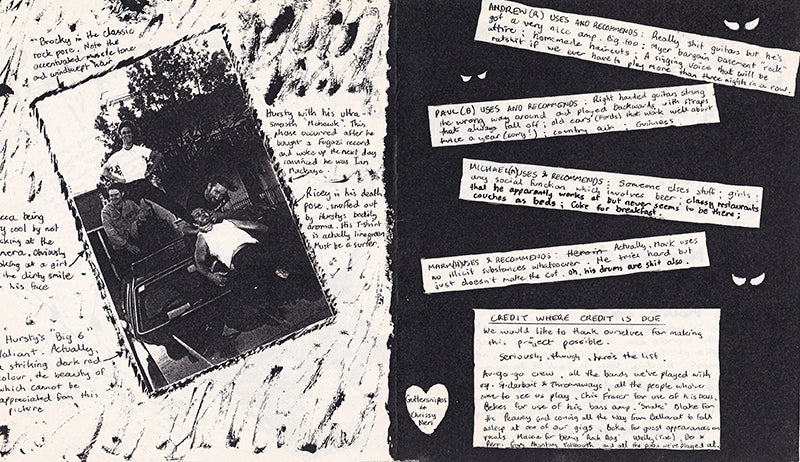 "Brocky in the classic
rock pose. Note the
accentuated muscle tone
and windswept hair
Hursty with his ultra-
smooth "Mohawk". This
phase occurred after he
bought a Fugazi record
and woke up the next day
convinced he was Ian
Mackaye.
Ricey in his death
pose, snuffed out
by Hursty's bodily
aroma. His T-shirt
is actually limegreen
Must be a surfer.
being
cool by not
at the
Obviously
at a girl
the dirty smile
his face
Hursty's "Big 6"
Valiant. Actually,
a striking dark red
colour, the beauty of
which cannot be
appreciated from this
picture
ANDREW(R) USES AND RECOMMENDS: Really shit guitars but he's
got a very nice amp. Big too; Myer bargain basement "rock"
attire; homemade haircuts; A singing voice that will be
ratshit if we ever have to play more than three nights in a row.
PAUL(B) USES AND RECOMMENDS: Right handed guitars strung
the wrong way around and played backwards, with straps
that always fall off; old cars (Fords) that work well about
twice a year (sorry!); country air; Guiness.
MICHAEL(H) USES & RECOMMENDS: Someone elses stuff; girls;
any social function which involves beer; classy restaurants
that he apparently works at but never seems to be there;
couches as beds; Coke for breakfast.
USES & RECOMMENDS: Heroin Actually, Mark uses
no illicit substances whatsoever. He tries hard but
just doesn't make the cut. Oh, his drums are shit also.
CREDIT WHERE CREDIT IS DUE
We would like to thank ourselves for making
this project possible.
Seriously though, here's the list.
Ar-go-go crew, all the bands we've played with
esp. Spiderbait & Throwaways, all the people who've
come to see us play, Chris Fraser for use of his bass,
for use of his bass amp, "Snake" Blake for
the Peavey and coming all the way from Ballarat to fall
asleep at one of our gigs, for guest appearances on
vocals, for being "Rock Dog", Welly (Tim), &
from and all the pubs we've played at.
Guttersnipes
4
Chrissy
Neri